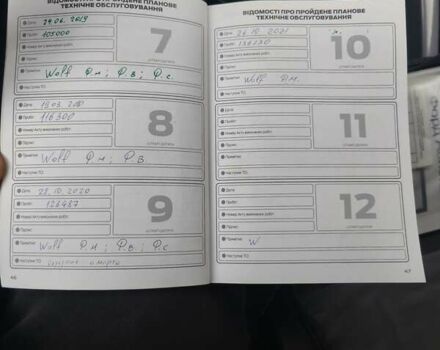 ВІДОМОСТІ ПРО ПРОЙДЕНЕ ПЛАНОВЕ
ТЕХНІЧНЕ ОБСЛУГОВУВАННЯ
Дата: 24.06.2019
Пробіг: 105000
7
Номер Акту виконаних робіт:
Підпис:
Примітки: Wolf Ф.м; Ф.в; Ф.с.
Наступне ТО:
Дата:
Пробіг: 116300
8
Номер Акту виконаних робіт:
Підпис:
Примітки: Wolf Ф.м, Ф.в
Наступне ТО:
Дата: 28.10.2020
Пробіг: 126487
9
Номер Акту виконаних робіт:
Підпис:
Примітки: Wolf Ф.м; Ф.в; Ф.с
Наступне ТО:
46
ВІДОМОСТІ ПРО ПРОЙДЕНЕ ПЛАНОВЕ
ТЕХНІЧНЕ ОБСЛУГОВУВАННЯ
Дата: 26.10.2021
Пробіг:
10
Номер Акту виконаних робіт:
Підпис:
Примітки: Wolf Ф.м.
Наступне ТО:
Дата:
Пробіг:
11
Номер Акту виконаних робіт:
Підпис:
Примітки:
Наступне ТО:
Дата:
Пробіг:
12
Номер Акту виконаних робіт:
Підпис:
Примітки: W
Наступне ТО:
47